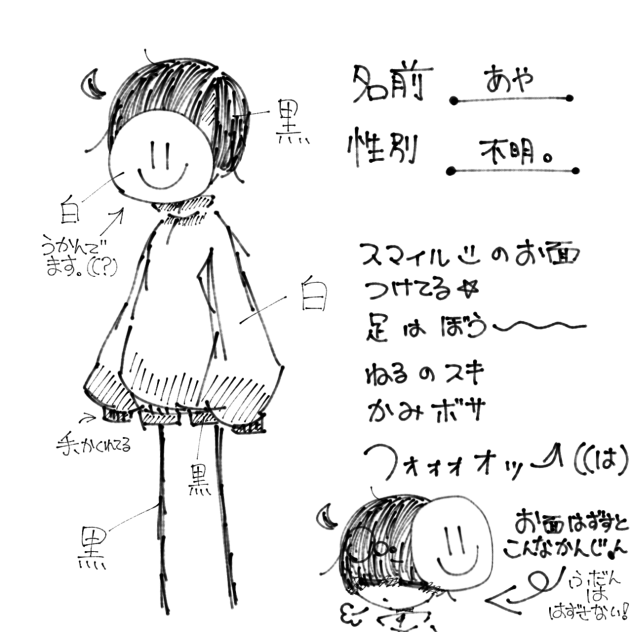 名前 あや
性別 不明。
黒
白
うかんで
ます。((?)
白
手、かくれてる
黒
黒
スマイル のお面
つけてる☆
足は ぼう〜
ねるのスキ
かみボサ
フォォォオッ ((は)
お面はずすと
こんなかんじ、ん
ふだん
は
はずさない!